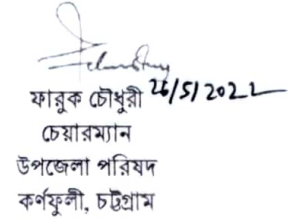 ফারুক চৌধুরী 26/5/2022
চেয়ারম্যান
উপজেলা পরিষদ
কর্ণফুলী, চট্টগ্রাম